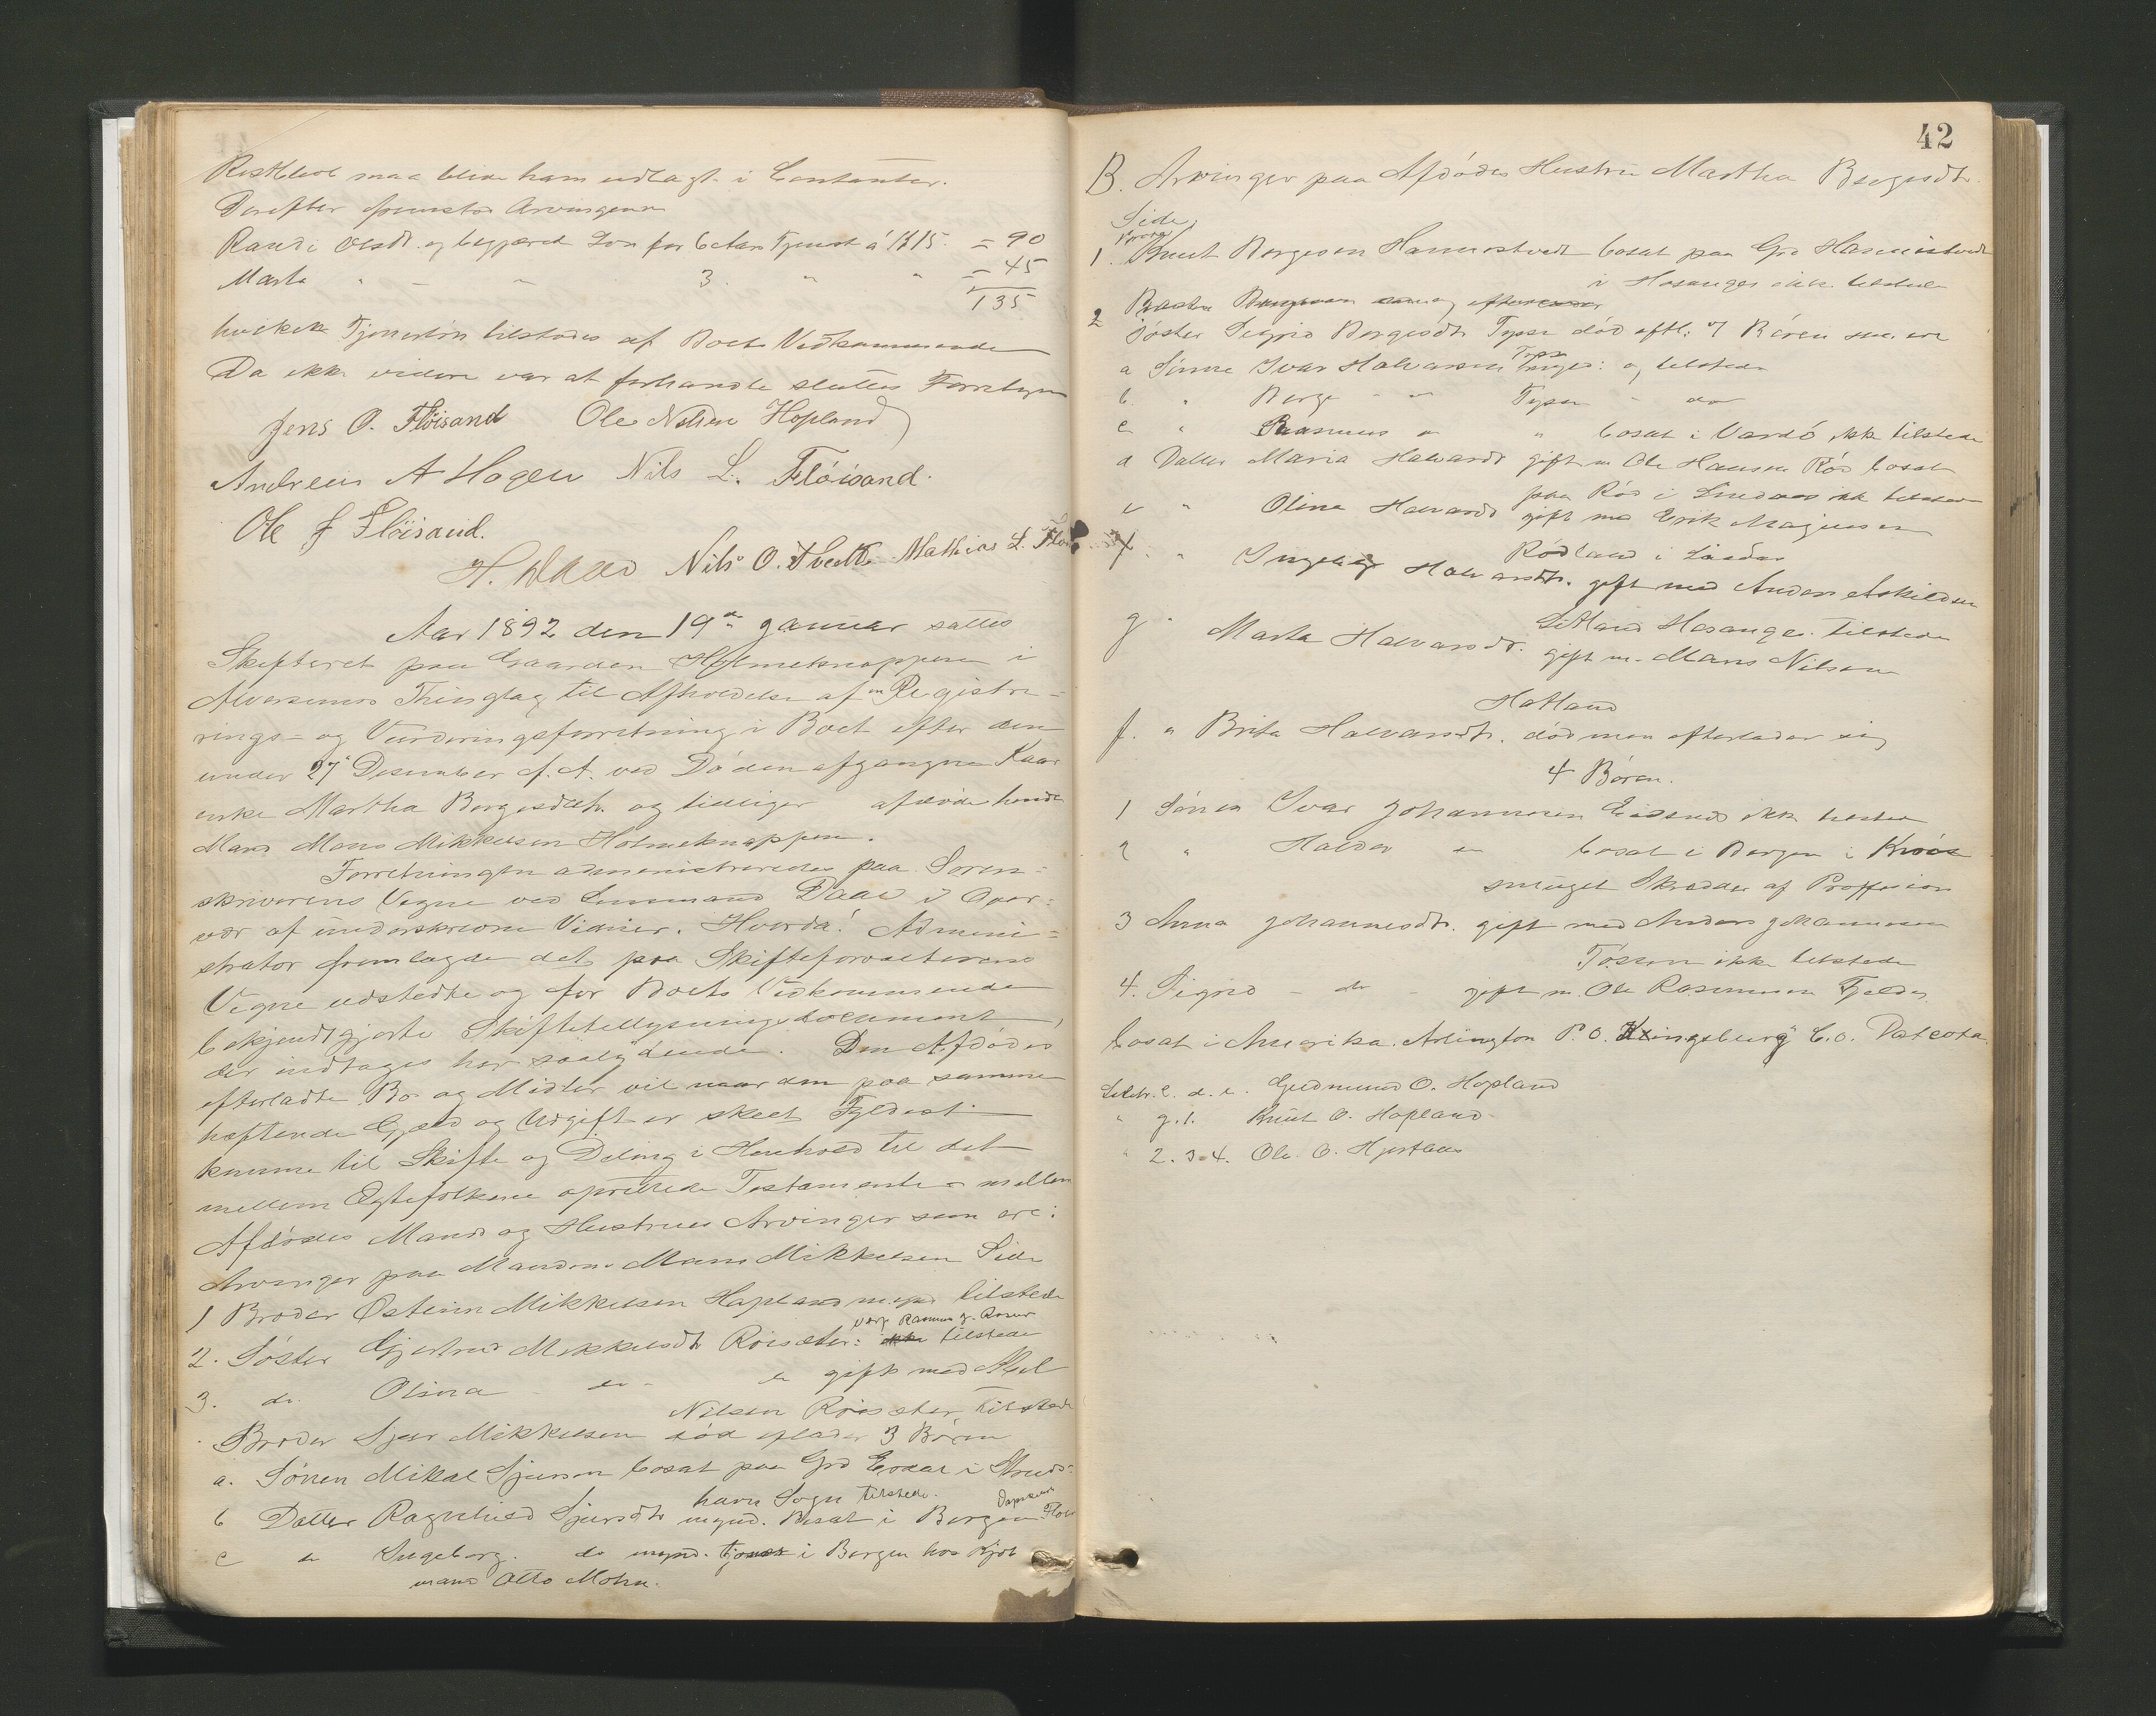 Restbeløb maa blive ham udlagt i Contanter.
Derefter fremstod Arvingerne
Randi Olsdt. og begjæred Løn for 6 Aars Tjenest á 15 = 90
Marta " - " 3 " " = 45
135
hvilken Tjenerløn tilstodes af Boets Vedkommende
Da ikke videre var at forhandle sluttes Forretn
Jens O. Fløisand Ole Nilsen Hopland
Andreas A Hagen Nils L. Fløisand.
Ole J Fløisand.
H. Daae Nils O. Mathias L. Fløi
Aar 1892 den 19de Januar sattes
Skifteret paa Gaarden Holmeknappen i
Alversunds Thinglag til Afholdelse af en Registre-
rings- og Vurderingsforretning i Boet efter den
under 27de Desember f. A. ved Døden afgangne Kaar
enke Martha Borgesdtr. og tidliger afdøde hendes
Mand Mons Mikkelsen Holmeknappen.
Forretningen administreredes paa Soren-
skriverens Vegne ved Lensmand Daae i Over-
vær af underskrevne Vidner. Hvorda! Admini-
strator fremlagde det paa Skifteforvalterens
Vegne udstedte og for Boets Vedkommende
bekjendtgjorte Skiftetillysningsdocument,
der indtages her saalydende. Den Afdødes
efterladte Bo og Midler vil naar den paa samme
hæftende Gjæld og Udgift er skeet Fyldest
komme til Skifte og Deling i Henhold til det
mellem Egtefolkene oprettede Testamente - mellem
Afdødes Mands og Hustrues Arvinger som ere:
Arvinger paa Mandens Mons Mikkelsen Side
1 Broder Østeinn Mikkelsen Hopland mynd tilstede
Værge Rasmus J.
2. Søster Gjertrud Mikkelsdt Roisæter: ikke tilstede
3. do. Olina - do - do gift med
Nilsen Roisæter tilstede
Broder Sjur Mikkelsen død eflader 3 Børn
a. Sønen Mikal Sjursen bosat paa Grd i
havn Sogn tilstede.
b Datter Ragnhild Sjursdtr mynd. bosat i Bergen
c do Ingeborg. do mynd. tjener i Bergen hos Kjøb
mand Otto Mohn.
42
B. Arvinger paa Afdødes Hustru Martha Borgesdtr.
Side.
Broder
1. Knut Borgesen Hannestvedt bosat paa Grd Hannestvedt
i Hosanger ikke tilstede
2 Søster Sigrid Borgesdtr Tysse død eftl: 7 Børen som ere
a Sønne Ivar Halvorsen Tysse myd: og tilstede
b. " Borge - " Tysse - do
c " Rasmus " " bosat i Vardø ikke tilstede
d Datter Maria Halvardsdt gift m Ole Hansen Rós bosat
paa Rós i Lindaas ikk tilstede
e " Olina Halvardsdt gift med Erik Magnussen
Rødland i Lindaas
f " Ingeborg Halvarsdtr. gift med Anders Askildsen
Hosanger. tilstede
g " Marta Halvarsdtr. gift m. Mons Nilsen
Hatland
f. " Brita Halvarsdtr. død men efterlader sig
4 Børen.
1 Sønen Ivar Johannesen ikke tilstede
2 " Haldor do bosat i Bergen i
smuget Skrædder af Proffesion
3 Anna Johannesdtr. gift med Anders Johannesen
Tøssen ikke tilstede
4. Sigrid - do - gift m. Ole Rasmussen Tjelde
bosat i Amerika. Arlington P. O. Kingsburg C.o. Datcota.
c. d. e. Gudmund O. Hopland
" g. 1. Knut O. Hopland
" 2. 3. 4. Ole O. Hjertaas